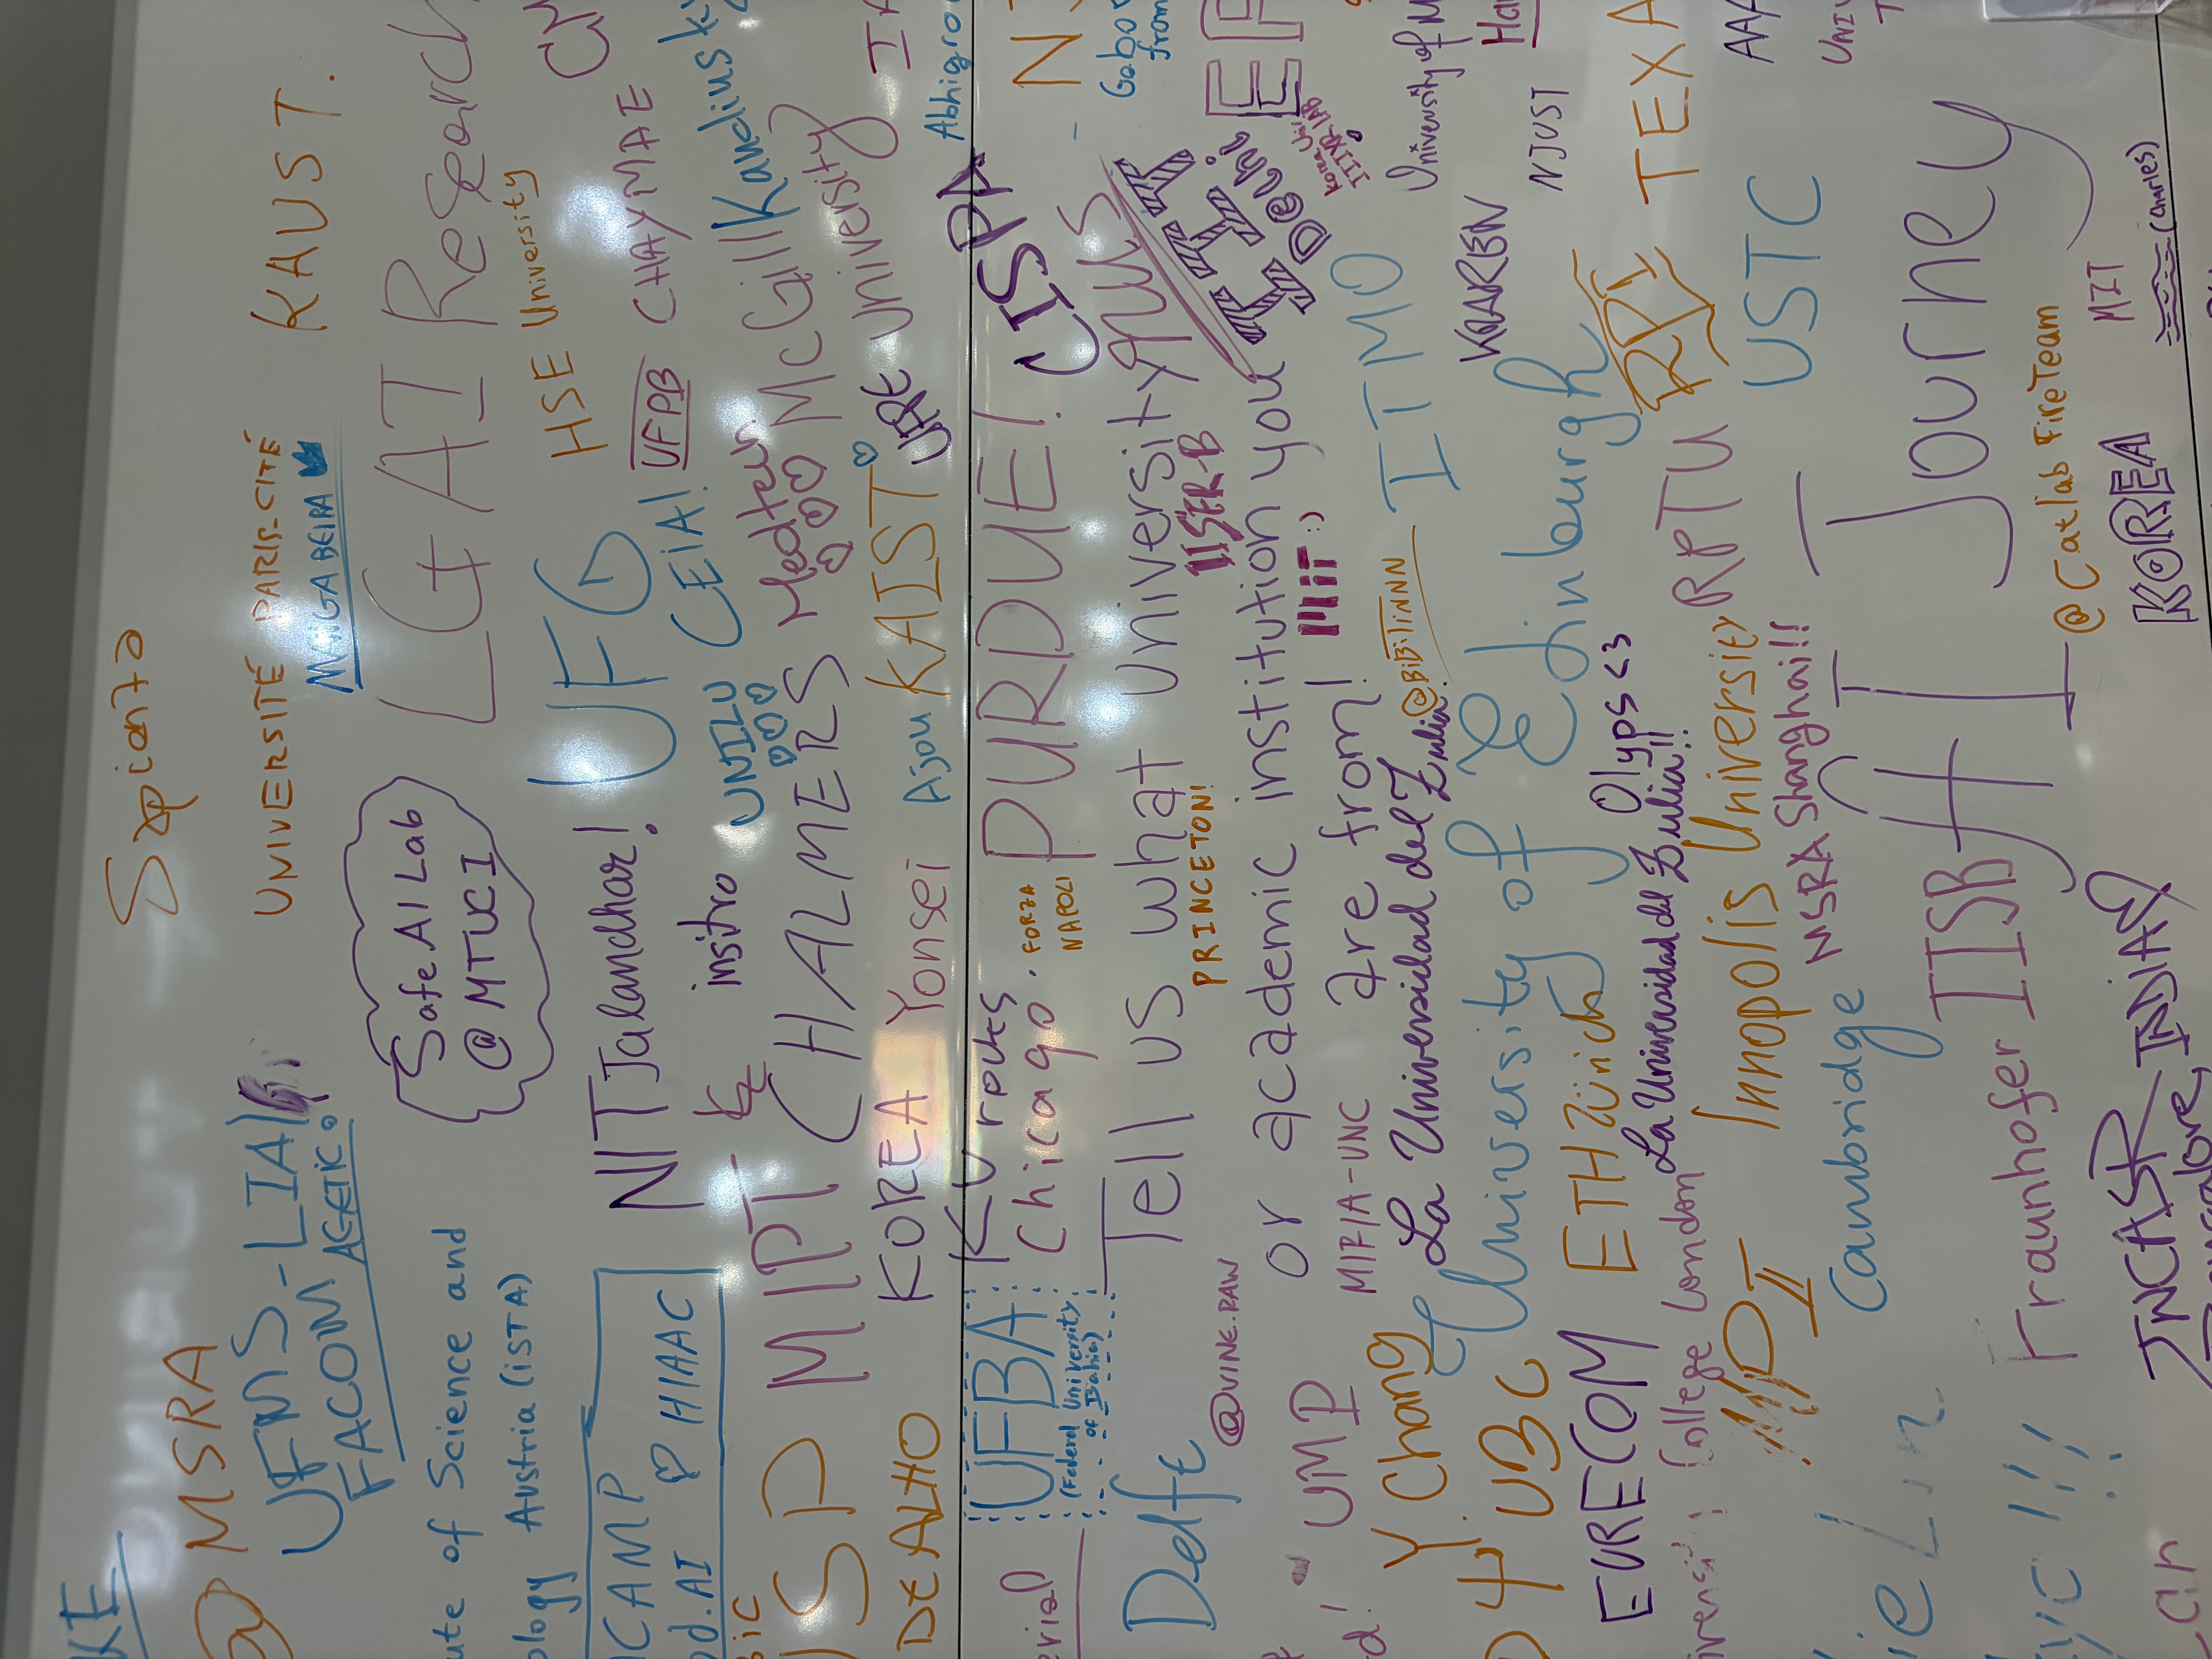 Sapienza
KAUST.
UNIVERSITÉ PARIS-CITÉ
MANGABEIRA
MSRA
UFMS-LIA
FACOM AGETIC
LG AI Research
Safe AI Lab
@ MTUCI
HSE University
ute of Science and
ology Austria (ISTA)
UFG
CHAYMAE
UFPB
NIT Jalandhar!
CEIA!
CAMP
HIAAC
d.AI
insitro
UNILU
McGill
University
CHALMERS
MIPT
KAIST
Ajou
UFRE
Yonsei
KOREA
DEALHO
CISPA
PURDUE!
FORZA
NAPOLI
KU rocks
Chicago.
UFBA
(Federal University
of Bahia)
Delft
NUS
IIT
Delhi
Korea Uni
Tell us what university
or academic institution you
are from!
IISER-B
PRINCETON!
MIT :)
@VINE.RAW
UMP
MIFIA-UNC
La Universidad del Zulia.
@BiBiTiNN
ITMO
University of
Y. Chang
University of Edinburgh
KAREN
NJUST
UBC
ETH Zürich
Olyps <3
EURECOM
La Universidad del Zulia!!
College London
TEXA
RPTU
Innopolis University
MSRA Shanghai!!
USTC
Cambridge
Journey
IISB
Fraunhofer
@Catlab FireTeam
MIT
(Charles)
KOREA
JNCASR
INDIA